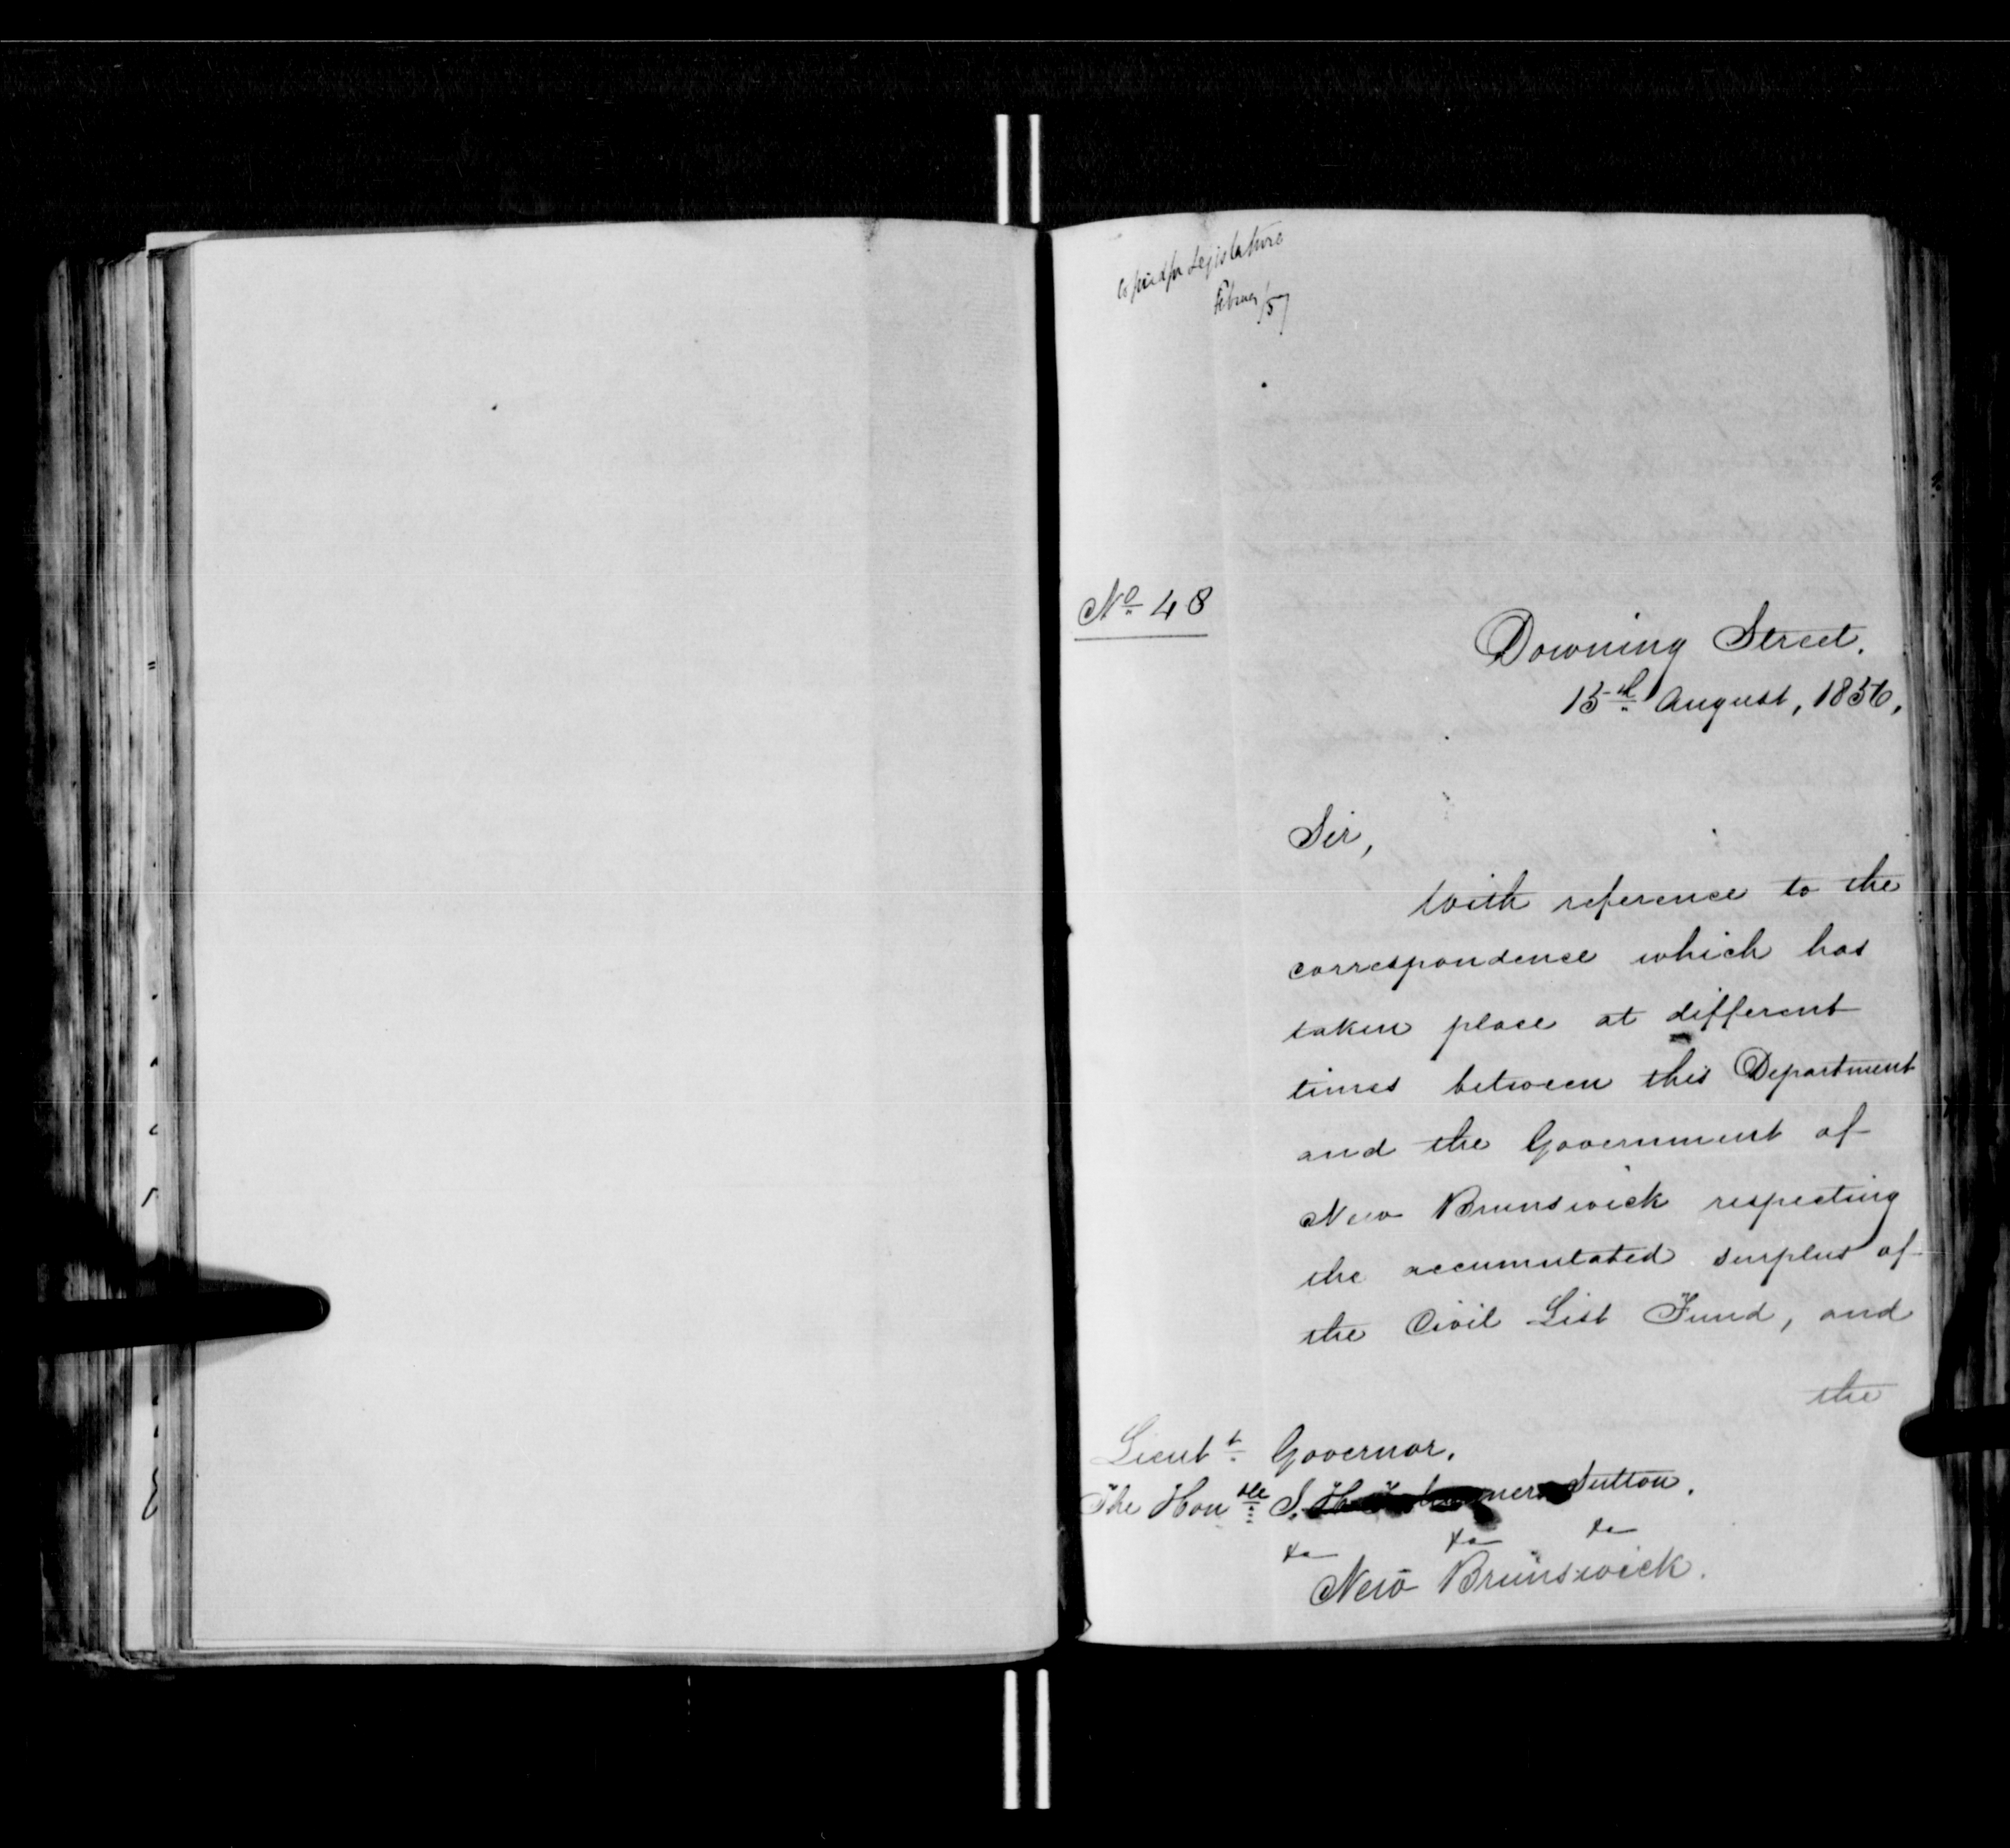 Copied for Legislature
Februy/57
No 48
Downing Street.
15th August, 1856,
Sir,
With reference to the
correspondence which has
taken place at different
times between this Department
and the Government of
New Brunswick respecting
the accumulated surplus of
the Civil List Fund, and
the
Lieutt Governor.
The Honble J. H. T. Manners Sutton.
&c &c &c
New Brunswick.